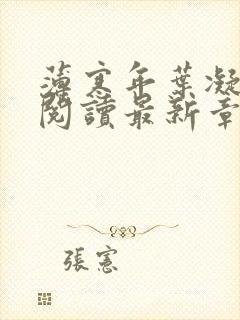 薄寒年葉凝
閱讀最新章
張憲